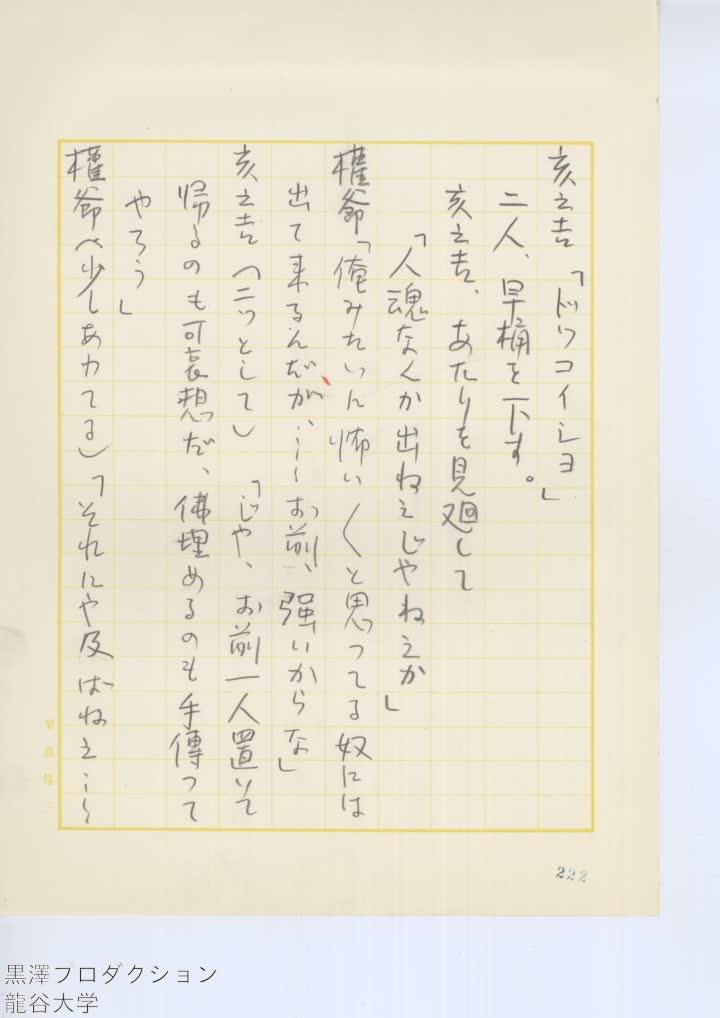 亥之吉「ドッコイショ」
二人、早桶を下す。
亥之吉、あたりを見廻して
「人魂なんか出ねえじやねえか」
権爺「俺みたいに怖い〱と思つてる奴には
出て来るんだが……お前、強いからな」
亥之吉（ニッとして）「じや、お前一人置いて
帰るのも可哀想だ、佛埋めるのも手傳つて
やろう」
権爺（少しあわてる）「それにや及ばねえ……
222
黒澤プロダクション
龍谷大学